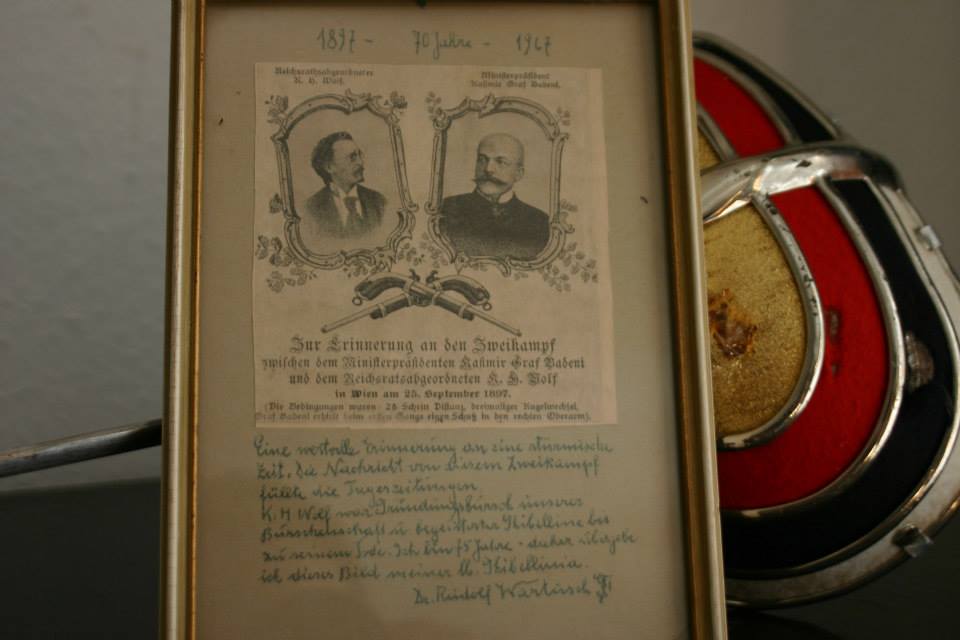 1897 - 70 Jahre - 1967
Reichsrathsabgeordneter
K. H. Wolf.
Ministerpräsident
Kasimir Graf Badeni.
Zur Erinnerung an den Zweikampf
zwischen dem Ministerpräsidenten Kasimir Graf Badeni
und dem Reichsratsabgeordneten K. H. Wolf
in Wien am 25. September 1897.
(Die Bedingungen waren: 25 Schritt Distanz, dreimaliger Kugelwechsel,
Graf Badeni erhielt beim ersten Gange einen Schuß in den rechten Oberarm).
Eine wertvolle Erinnerung an eine stürmische
Zeit. Die Nachricht von diesem Zweikampf
füllte die Tageszeitungen.
K. H Wolf war Gründungsbursch unserer
Burschenschaft u. begeisterter Ghibelline bis
zu seinem Ende. Ich bin 75 Jahre - daher übergebe
ich dieses Bild meiner lb. Ghibellinia.
Dr. Rudolf Wartusch